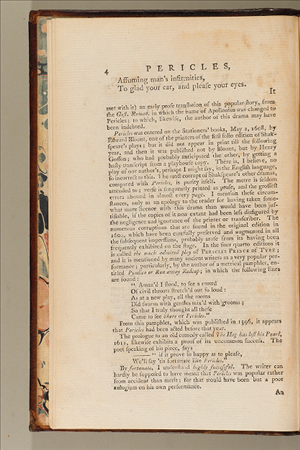 4 PERICLES,
Assuming man's infirmities,
To glad your ear, and please your eyes.
It
met with it) an early prose translation of this popular story, from
the Gest. Roman. in which the name of Apollonius was changed to
Pericles; to which, likewise, the author of this drama may have
been indebted.
Pericles was entered on the Stationers' books, May 2, 1608, by
Edward Blount, one of the printers of the first folio edition of Shak-
speare's plays; but it did not appear in print till the following
year, and then it was published not by Blount, but by Henry
Gosson; who had probably anticipated the other, by getting a
hasty transcript from a playhouse copy. There is, I believe, no
play of our author's, perhaps I might say, in the English language,
so incorrect as this. The most corrupt of Shakspeare's other dramas,
compared with Pericles, is purity itself. The metre is seldom
attended to; verse is frequently printed as prose, and the grossest
errors abound in almost every page. I mention these circum-
stances, only as an apology to the reader for having taken some-
what more licence with this drama than would have been jus-
tifiable, if the copies of it now extant had been less disfigured by
the negligence and ignorance of the printer or transcriber. The
numerous corruptions that are found in the original edition in
which have been carefully preserved and augmented in all
the subsequent impressions, probably arose from its having been
frequently exhibited on the stage. In the four quarto editions it
is called the much admired play of PERICLES PRINCE OF TYRE;
and it is mentioned by many ancient writers as a very popular per-
formance; particularly, by the author of a metrical pamphlet, en-
titled Pymlico or Run away Redcap; in which the following lines
are found:
" Amaz'd I stood, to see a crowd
Of civil throats stretch'd out so loud:
As at a new play, all the rooms
Did swarm with gentles mix'd with grooms;
So that I truly thought all these
Came to see Shore or Pericles."
From this pamphlet, which was published in 1596, it appears
that Pericles had been acted before that year.
The prologue to an old comedy called The Hog has lost his Pearl,
1611, likewise exhibits a proof of its uncommon success. The
poet speaking of his piece, says
" if it prove so happy as to please,
We'll say 'tis fortunate like Pericles."
By fortunate, I understand highly successful. The writer can
hardly be supposed to have meant that Pericles was popular rather
from accident than merit; for that would have been but a poor
eulogium on his own performance.
An